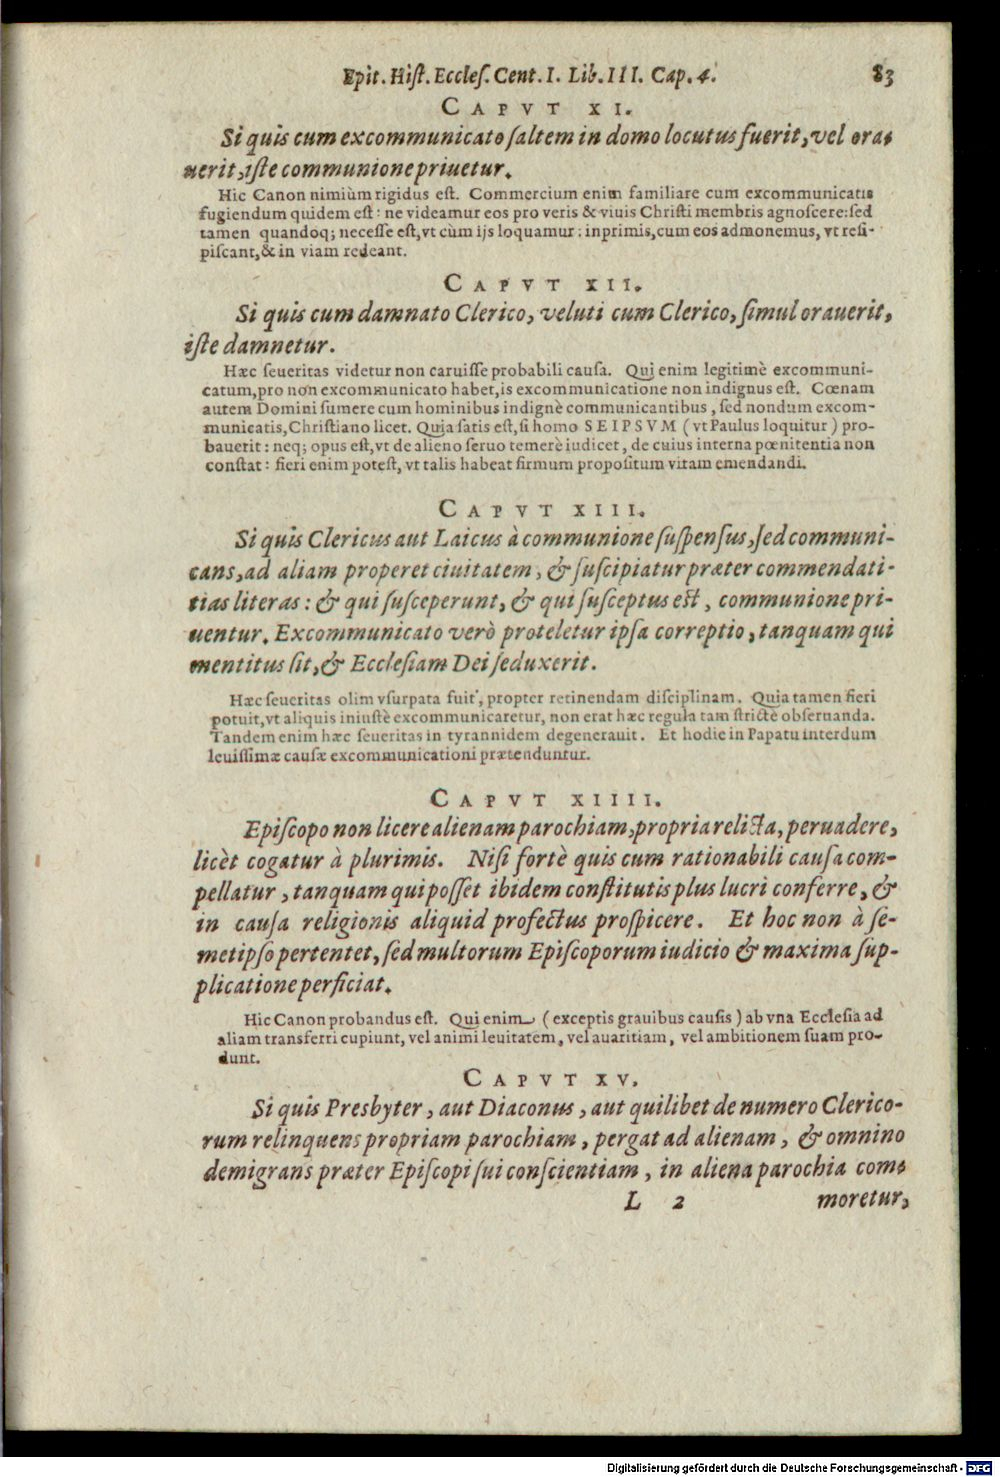 Epit. Hiſt. Eccleſ. Cent. I. Lib. III. Cap. 4. 83
CAPVT XI.
Si quis cum excommunicato ſaltem in domo locutus fuerit, vel ora-
uerit, iſte communione priuetur.
Hic Canon nimiùm rigidus eſt. Commercium enim familiare cum excommunicatis
fugiendum quidem eſt: ne videamur eos pro veris & viuis Chriſti membris agnoſcere: ſed
tamen quandoq; neceſſe eſt, vt cùm ijs loquamur: inprimis, cum eos admonemus, vt reſi-
piſcant, & in viam redeant.
CAPVT XII.
Si quis cum damnato Clerico, veluti cum Clerico, ſimul orauerit,
iſte damnetur.
Hæc ſeueritas videtur non caruiſſe probabili cauſa. Qui enim legitimè excommuni-
catum, pro non excommunicato habet, is excommunicatione non indignus eſt. Cœnam
autem Domini ſumere cum hominibus indignè communicantibus, ſed nondum excom-
municatis, Chriſtiano licet. Quia ſatis eſt, ſi homo SEIPSVM (vt Paulus loquitur) pro-
bauerit: neq; opus eſt, vt de alieno ſeruo temerè iudicet, de cuius interna pœnitentia non
conſtat: fieri enim poteſt, vt talis habeat firmum propoſitum vitam emendandi.
CAPVT XIII.
Si quis Clericus aut Laicus à communione ſuſpenſus, ſed communi-
cans, ad aliam properet ciuitatem, & ſuſcipiatur præter commendati-
tias literas: & qui ſuſceperunt, & qui ſuſceptus eſt, communione pri-
uentur. Excommunicato verò proteletur ipſa correptio, tanquam qui
mentitus ſit, & Eccleſiam Dei ſeduxerit.
Hæc ſeueritas olim vſurpata fuit, propter retinendam diſciplinam. Quia tamen fieri
potuit, vt aliquis iniuſtè excommunicaretur, non erat hæc regula tam ſtrictè obſeruanda.
Tandem enim hæc ſeueritas in tyrannidem degenerauit. Et hodie in Papatu interdum
leuiſſimæ cauſæ excommunicationi prætenduntur.
CAPVT XIIII.
Epiſcopo non licere alienam parochiam, propria relicta, peruadere,
licèt cogatur à plurimis. Niſi fortè quis cum rationabili cauſa com-
pellatur, tanquam qui poſſet ibidem conſtitutis plus lucri conferre, &
in cauſa religionis aliquid profectus proſpicere. Et hoc non à ſe-
metipſo pertentet, ſed multorum Epiſcoporum iudicio & maxima ſup-
plicatione perficiat.
Hic Canon probandus eſt. Qui enim (exceptis grauibus cauſis) ab vna Eccleſia ad
aliam transferri cupiunt, vel animi leuitatem, vel auaritiam, vel ambitionem ſuam pro-
dunt.
CAPVT XV.
Si quis Presbyter, aut Diaconus, aut quilibet de numero Clerico-
rum relinquens propriam parochiam, pergat ad alienam, & omnino
demigrans præter Epiſcopi ſui conſcientiam, in aliena parochia com-
L 2 moretur,
Digitalisierung gefördert durch die Deutsche Forschungsgemeinschaft - DFG